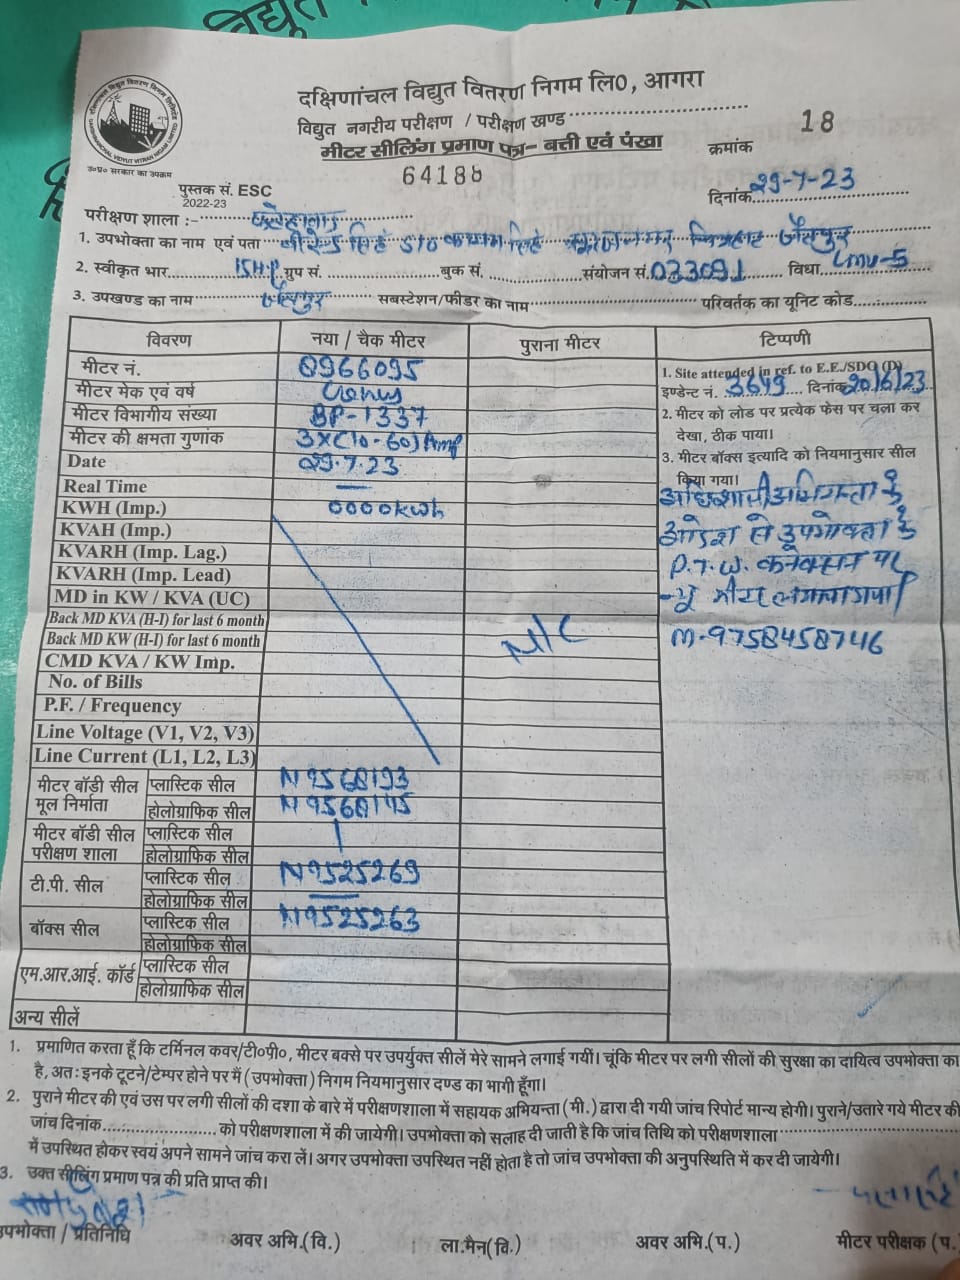 विद्युत
दक्षिणांचल विद्युत वितरण निगम लि0, आगरा
विद्युत नगरीय परीक्षण / परीक्षण खण्ड
मीटर सीलिंग प्रमाण पत्र- बत्ती एवं पंखा
क्रमांक 18
64188
उ०प्र० सरकार का उपक्रम
पुस्तक सं. ESC
2022-23
दिनांक 29-7-23
परीक्षण शाला :-
1. उपभोक्ता का नाम एवं पता सिंह S/O सिंह
2. स्वीकृत भार 15H.P. ग्रुप सं. बुक सं. संयोजन सं. 033091 विधा LMV-5
3. उपखण्ड का नाम सबस्टेशन/फीडर का नाम परिवर्तक का यूनिट कोड
विवरण नया / चैक मीटर पुराना मीटर टिप्पणी
मीटर नं. 0966095
मीटर मेक एवं वर्ष Genus
मीटर विभागीय संख्या BP-1337
मीटर की क्षमता गुणांक 3X(10-60)Amp
Date 29.7.23
Real Time —
KWH (Imp.) 0000kwh
KVAH (Imp.)
KVARH (Imp. Lag.)
KVARH (Imp. Lead)
MD in KW / KVA (UC)
Back MD KVA (H-I) for last 6 month
Back MD KW (H-I) for last 6 month
N/C
CMD KVA / KW Imp.
No. of Bills
P.F. / Frequency
Line Voltage (V1, V2, V3)
Line Current (L1, L2, L3)
1. Site attended in ref. to E.E./SDO (D)
इण्डेन्ट नं. 3649 दिनांक 20/6/23
2. मीटर को लोड पर प्रत्येक फेस पर चला कर
देखा, ठीक पाया।
3. मीटर बॉक्स इत्यादि को नियमानुसार सील
किया गया।
अधिशासी अभियन्ता के
आदेश से उपभोक्ता के
P.T.W. कनेक्शन पर
मीटर लगाया गया
M-9758458746
मीटर बॉडी सील मूल निर्माता प्लास्टिक सील N9568193
होलोग्राफिक सील N9568145
मीटर बॉडी सील परीक्षण शाला प्लास्टिक सील
होलोग्राफिक सील
टी.पी. सील प्लास्टिक सील N9525269
होलोग्राफिक सील —
बॉक्स सील प्लास्टिक सील N9525263
होलोग्राफिक सील
एम.आर.आई. कॉर्ड प्लास्टिक सील
होलोग्राफिक सील
अन्य सीलें
1. प्रमाणित करता हूँ कि टर्मिनल कवर/टी०पी०, मीटर बक्से पर उपर्युक्त सीलें मेरे सामने लगाई गयीं। चूंकि मीटर पर लगी सीलों की सुरक्षा का दायित्व उपभोक्ता का
है, अतः इनके टूटने/टेम्पर होने पर मैं (उपभोक्ता) निगम नियमानुसार दण्ड का भागी हूँगा।
2. पुराने मीटर की एवं उस पर लगी सीलों की दशा के बारे में परीक्षणशाला में सहायक अभियन्ता (मी.) द्वारा दी गयी जांच रिपोर्ट मान्य होगी। पुराने/उतारे गये मीटर की
जांच दिनांक को परीक्षणशाला में की जायेगी। उपभोक्ता को सलाह दी जाती है कि जांच तिथि को परीक्षणशाला
में उपस्थित होकर स्वयं अपने सामने जांच करा लें। अगर उपभोक्ता उपस्थित नहीं होता है तो जांच उपभोक्ता की अनुपस्थिति में कर दी जायेगी।
3. उक्त सीलिंग प्रमाण पत्र की प्रति प्राप्त की।
उपभोक्ता / प्रतिनिधि अवर अभि.(वि.) ला.मैन(वि.) अवर अभि.(प.) मीटर परीक्षक (प.)